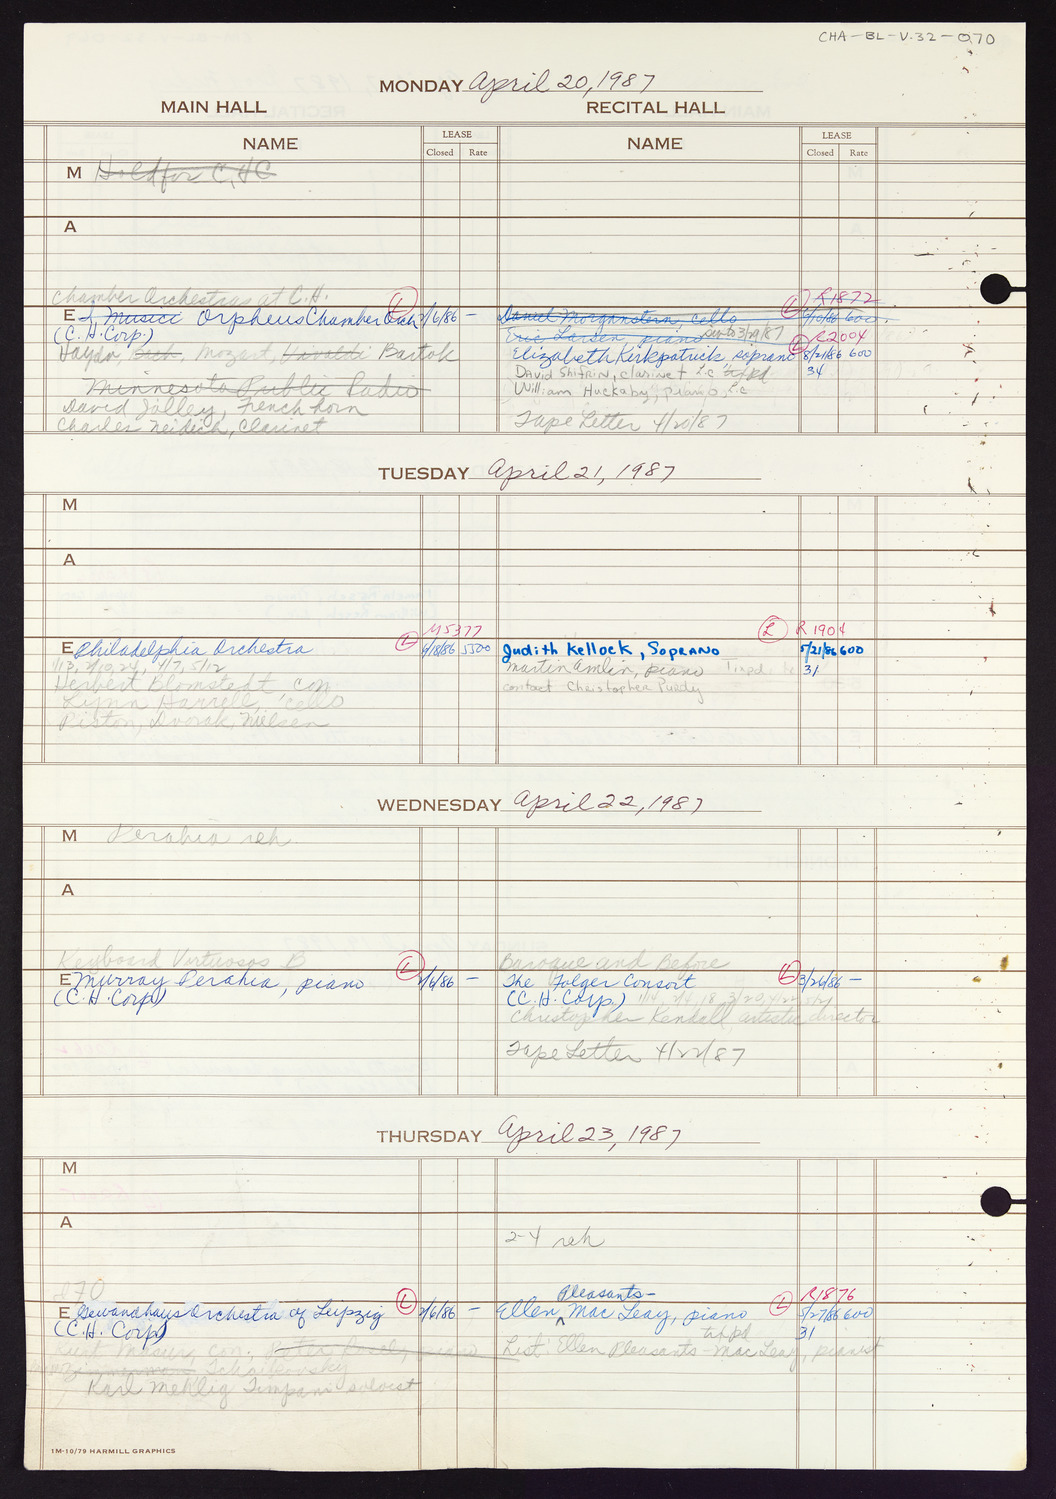 CHA-BL-V.32-070
MONDAY April 20, 1987
MAIN HALL RECITAL HALL
NAME LEASE Closed Rate NAME LEASE Closed Rate
M Hold for C.H.C
A
Chamber Orchestras at C.H.
E I Musici Orpheus Chamber Orch L 2/6/86 —
(C.H. Corp)
Haydn, Bach, Mozart, Vivaldi Bartok
Minnesota Public Radio
David Jolley, French horn
Charles Neidich, Clarinet
L R1872
Daniel Morganstern, cello 600
Eric Larsen, piano 3/29/87
L R2004
Elizabeth Kirkpatrick soprano 8/21/86 600
David Shifrin, clarinet 34
William Huckaby, piano
Tape Letter 4/20/87
TUESDAY April 21, 1987
M
A
M5377
E Philadelphia Orchestra L 4/18/86 5500
1/13, 2/10, 24, 4/7, 5/12
Herbert Blomstedt, con
Lynn Harrell, 'cello
Piston, Dvorak, Nielsen
L R1904
Judith Kellock, Soprano 5/21/86 600
Martin Amlin, piano 31
contact Christopher Purdy
WEDNESDAY April 22, 1987
M Perahia reh
A
Keyboard Virtuosos B
E Murray Perahia, piano L 2/6/86 —
(C.H. Corp)
Baroque and Before
The Folger Consort L 3/26/86 —
(C.H. Corp.)
Christopher Kendall, artistic director
Tape Letter 4/22/87
THURSDAY April 23, 1987
M
A
2-4 reh
E Gewandhaus Orchestra of Leipzig L 2/6/86 —
(C.H. Corp)
Kurt Masur, con. Peter Rosel, piano
Tchaikovsky
Karl Mehlig Timpani soloist
Pleasants- L R1876
Ellen ^ Mac Leay, piano 5/27/86 600
31
List: Ellen Pleasants-MacLeay, pianist
1M-10/79 HARMILL GRAPHICS